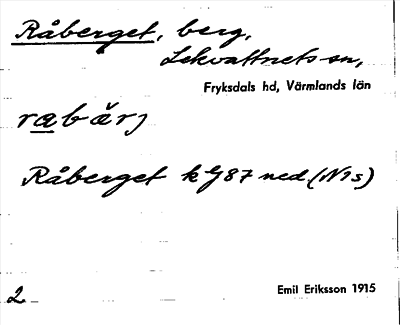 Råberget, berg,
Lekvattnets sn,
Fryksdals hd, Värmlands län
rabärj
Råberget k G87 ned. (N1s)
2
Emil Eriksson 1915